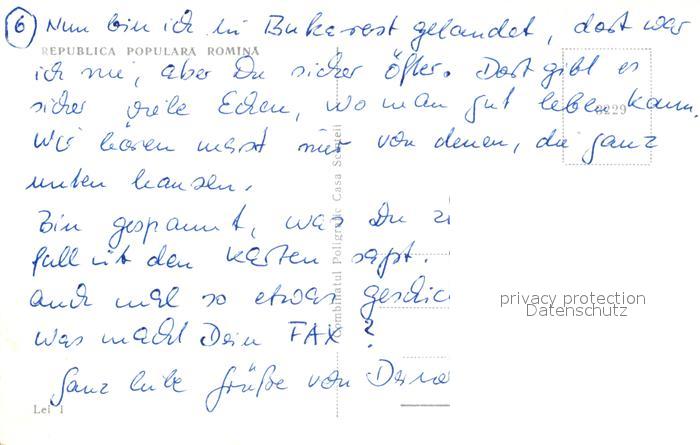 6 Nun bin ich in Bukarest gelandet, dort war
REPUBLICA POPULARA ROMINA
ich nie, aber Du sicher öfter. Dort gibt es
sicher viele Ecken, wo man gut leben kann.
8229
Wir hören meist nur von denen, die ganz
unten hausen.
Bin gespannt, was Du z
fall mit den Karten sagst.
auch mal so etwas geschic
was macht Dein FAX?
Ganz liebe Grüße von
Lei 1
Combinatul Poligrafic Casa Scînteii
privacy protection
Datenschutz